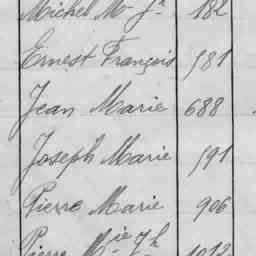 Michel Mie Jn 182
Ernest François 581
Jean Marie 688
Joseph Marie 591
Pierre Marie 906
Pierre Mie Jh 1012